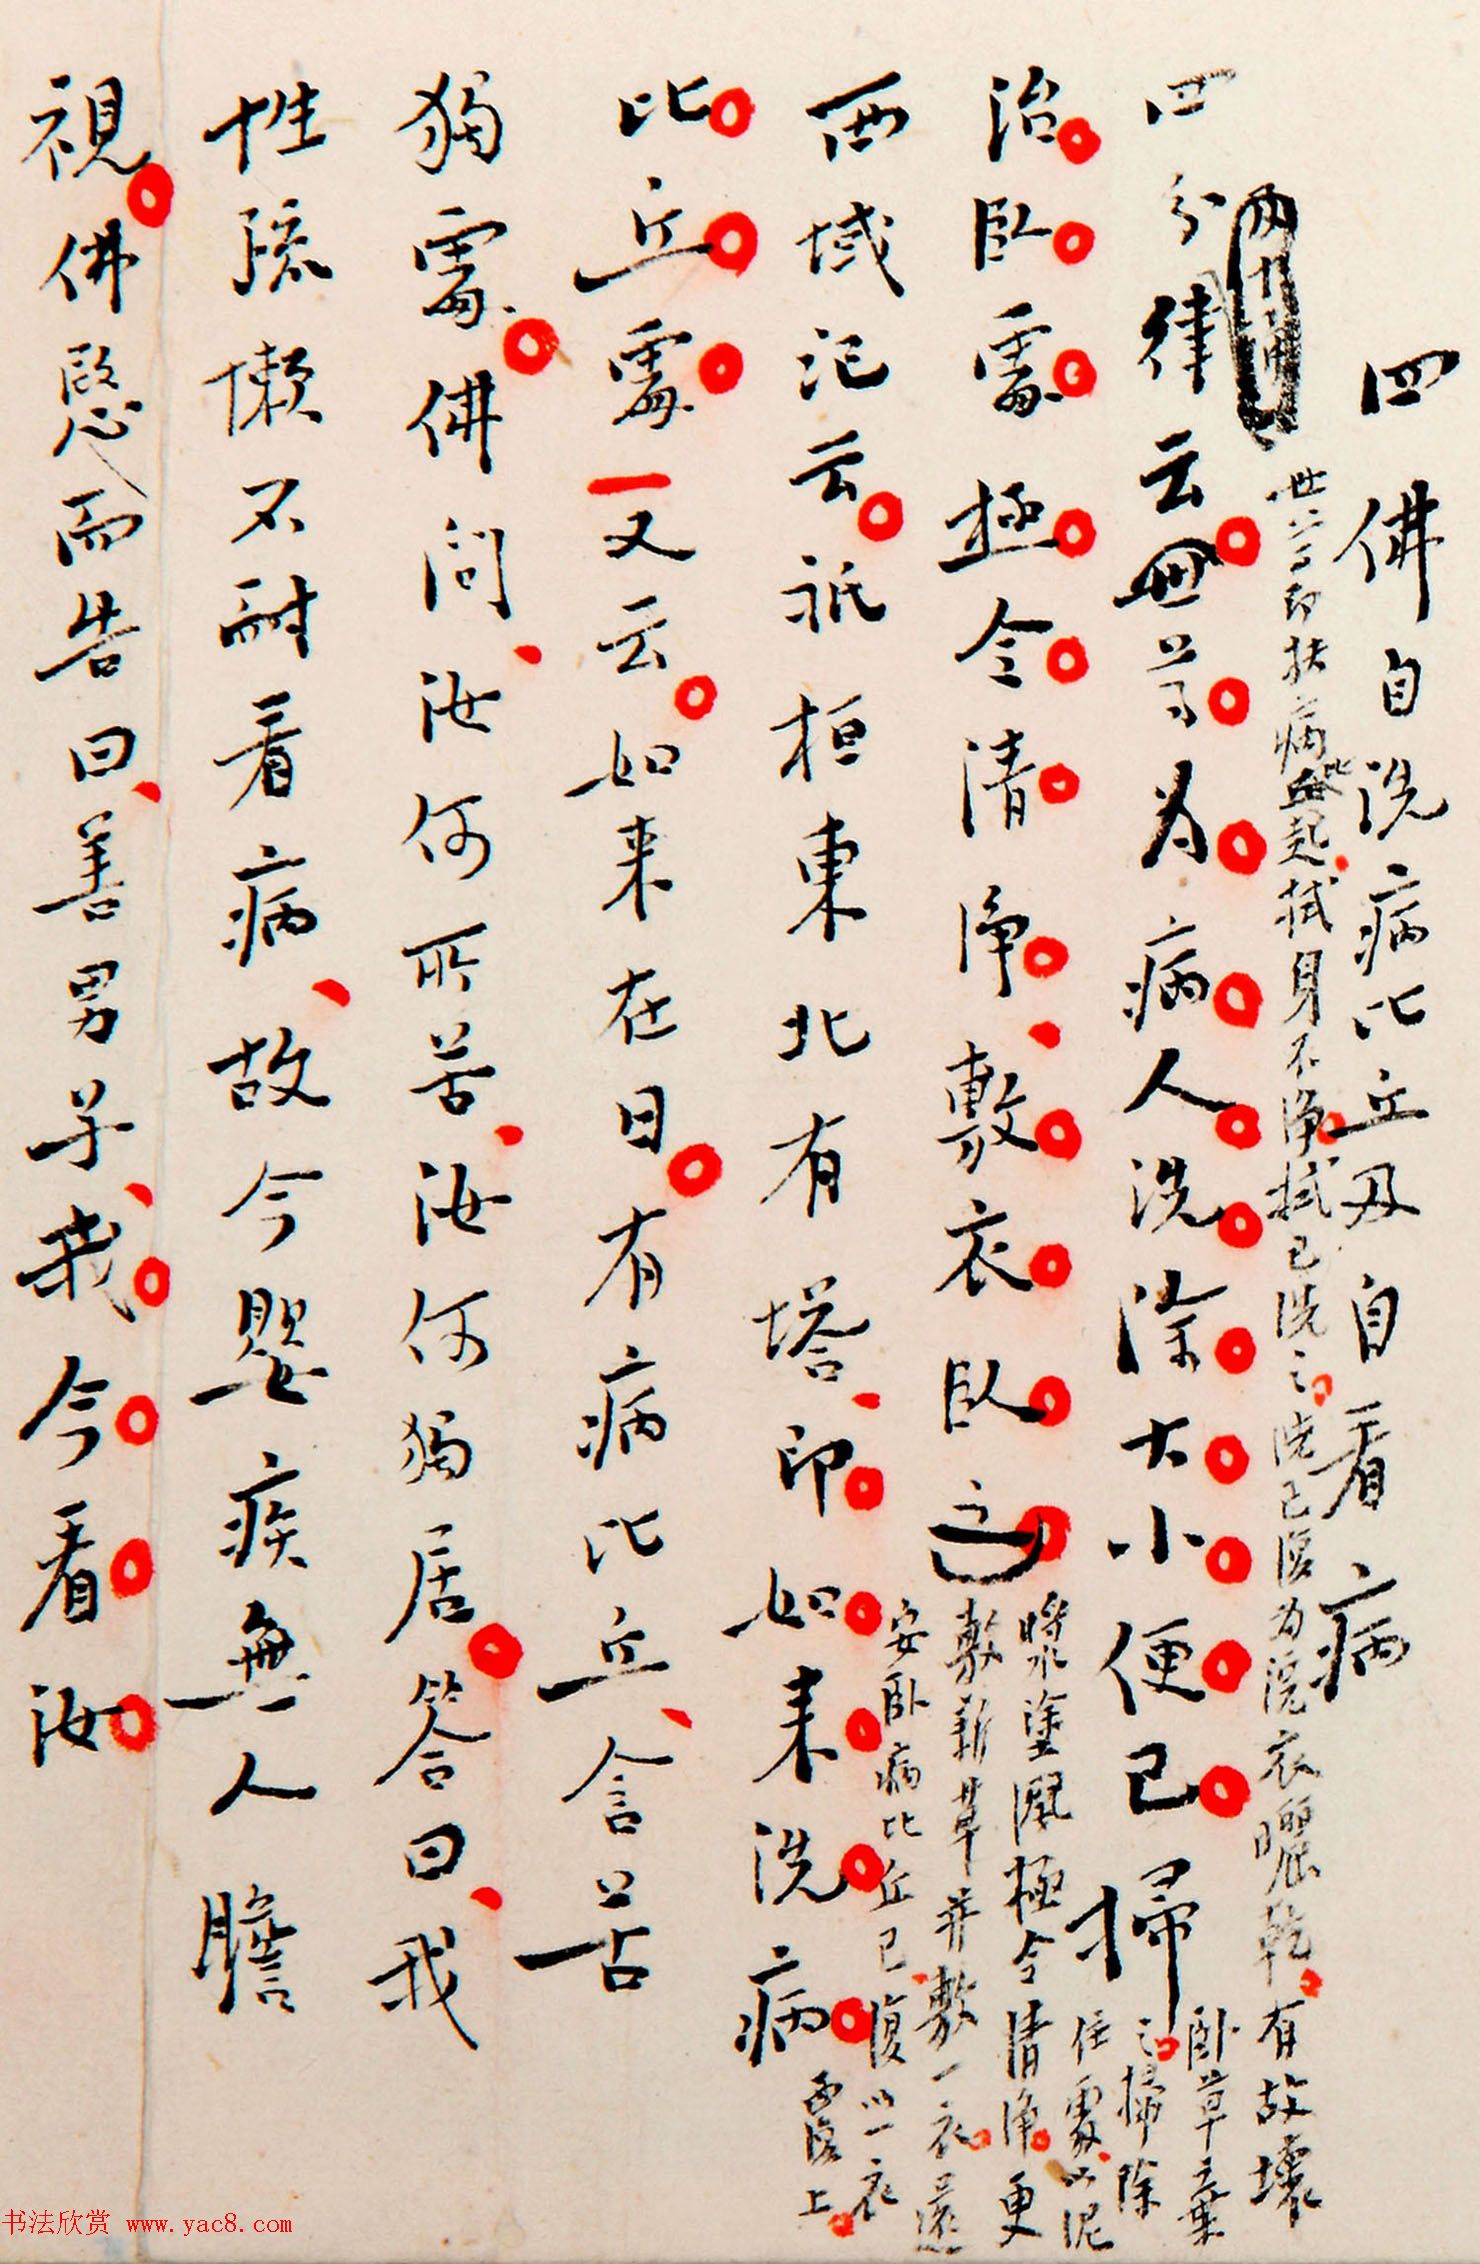 四佛自洗病比丘及自看病
世尊即扶病比丘起拭身不淨拭已洗之洗已復為浣衣曬乾有故壞
臥草棄
之掃除
住處以泥
漿塗洒極令清淨更
敷新草并敷一衣還
安臥病比丘已復以一衣
覆上
四分律云世尊為病人洗除大小便已掃
治臥處極令清淨敷衣臥之
西域記云祇桓東北有塔即如來洗病
比丘處又云如來在日有病比丘含苦
獨處佛問汝何所苦汝何獨居答曰我
性疏懶不耐看病故今嬰疾無人瞻
視佛愍而告曰善男子我今看汝
书法欣赏 www.yac8.com